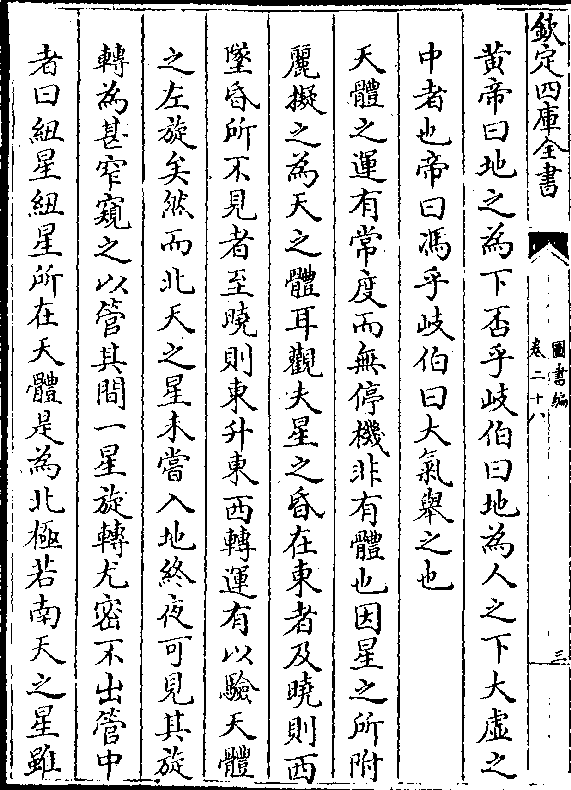 欽定四庫全書
圖書編
卷二十八
三
黄帝曰地之為下否乎岐伯曰地為人之下大虛之
中者也帝曰馮乎岐伯曰大氣舉之也
天體之運有常度而無停機非有體也因星之所附
麗擬之為天之體耳觀夫星之昏在東者及曉則西
墜昏所不見者至曉則東升東西轉運有以驗天體
之左旋矣然而北天之星未嘗入地終夜可見其旋
轉為甚窄窺之以管其間一星旋轉尤密不出管中
者曰紐星紐星所在天體是為北極若南天之星雖